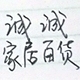 诚诚
家居百货